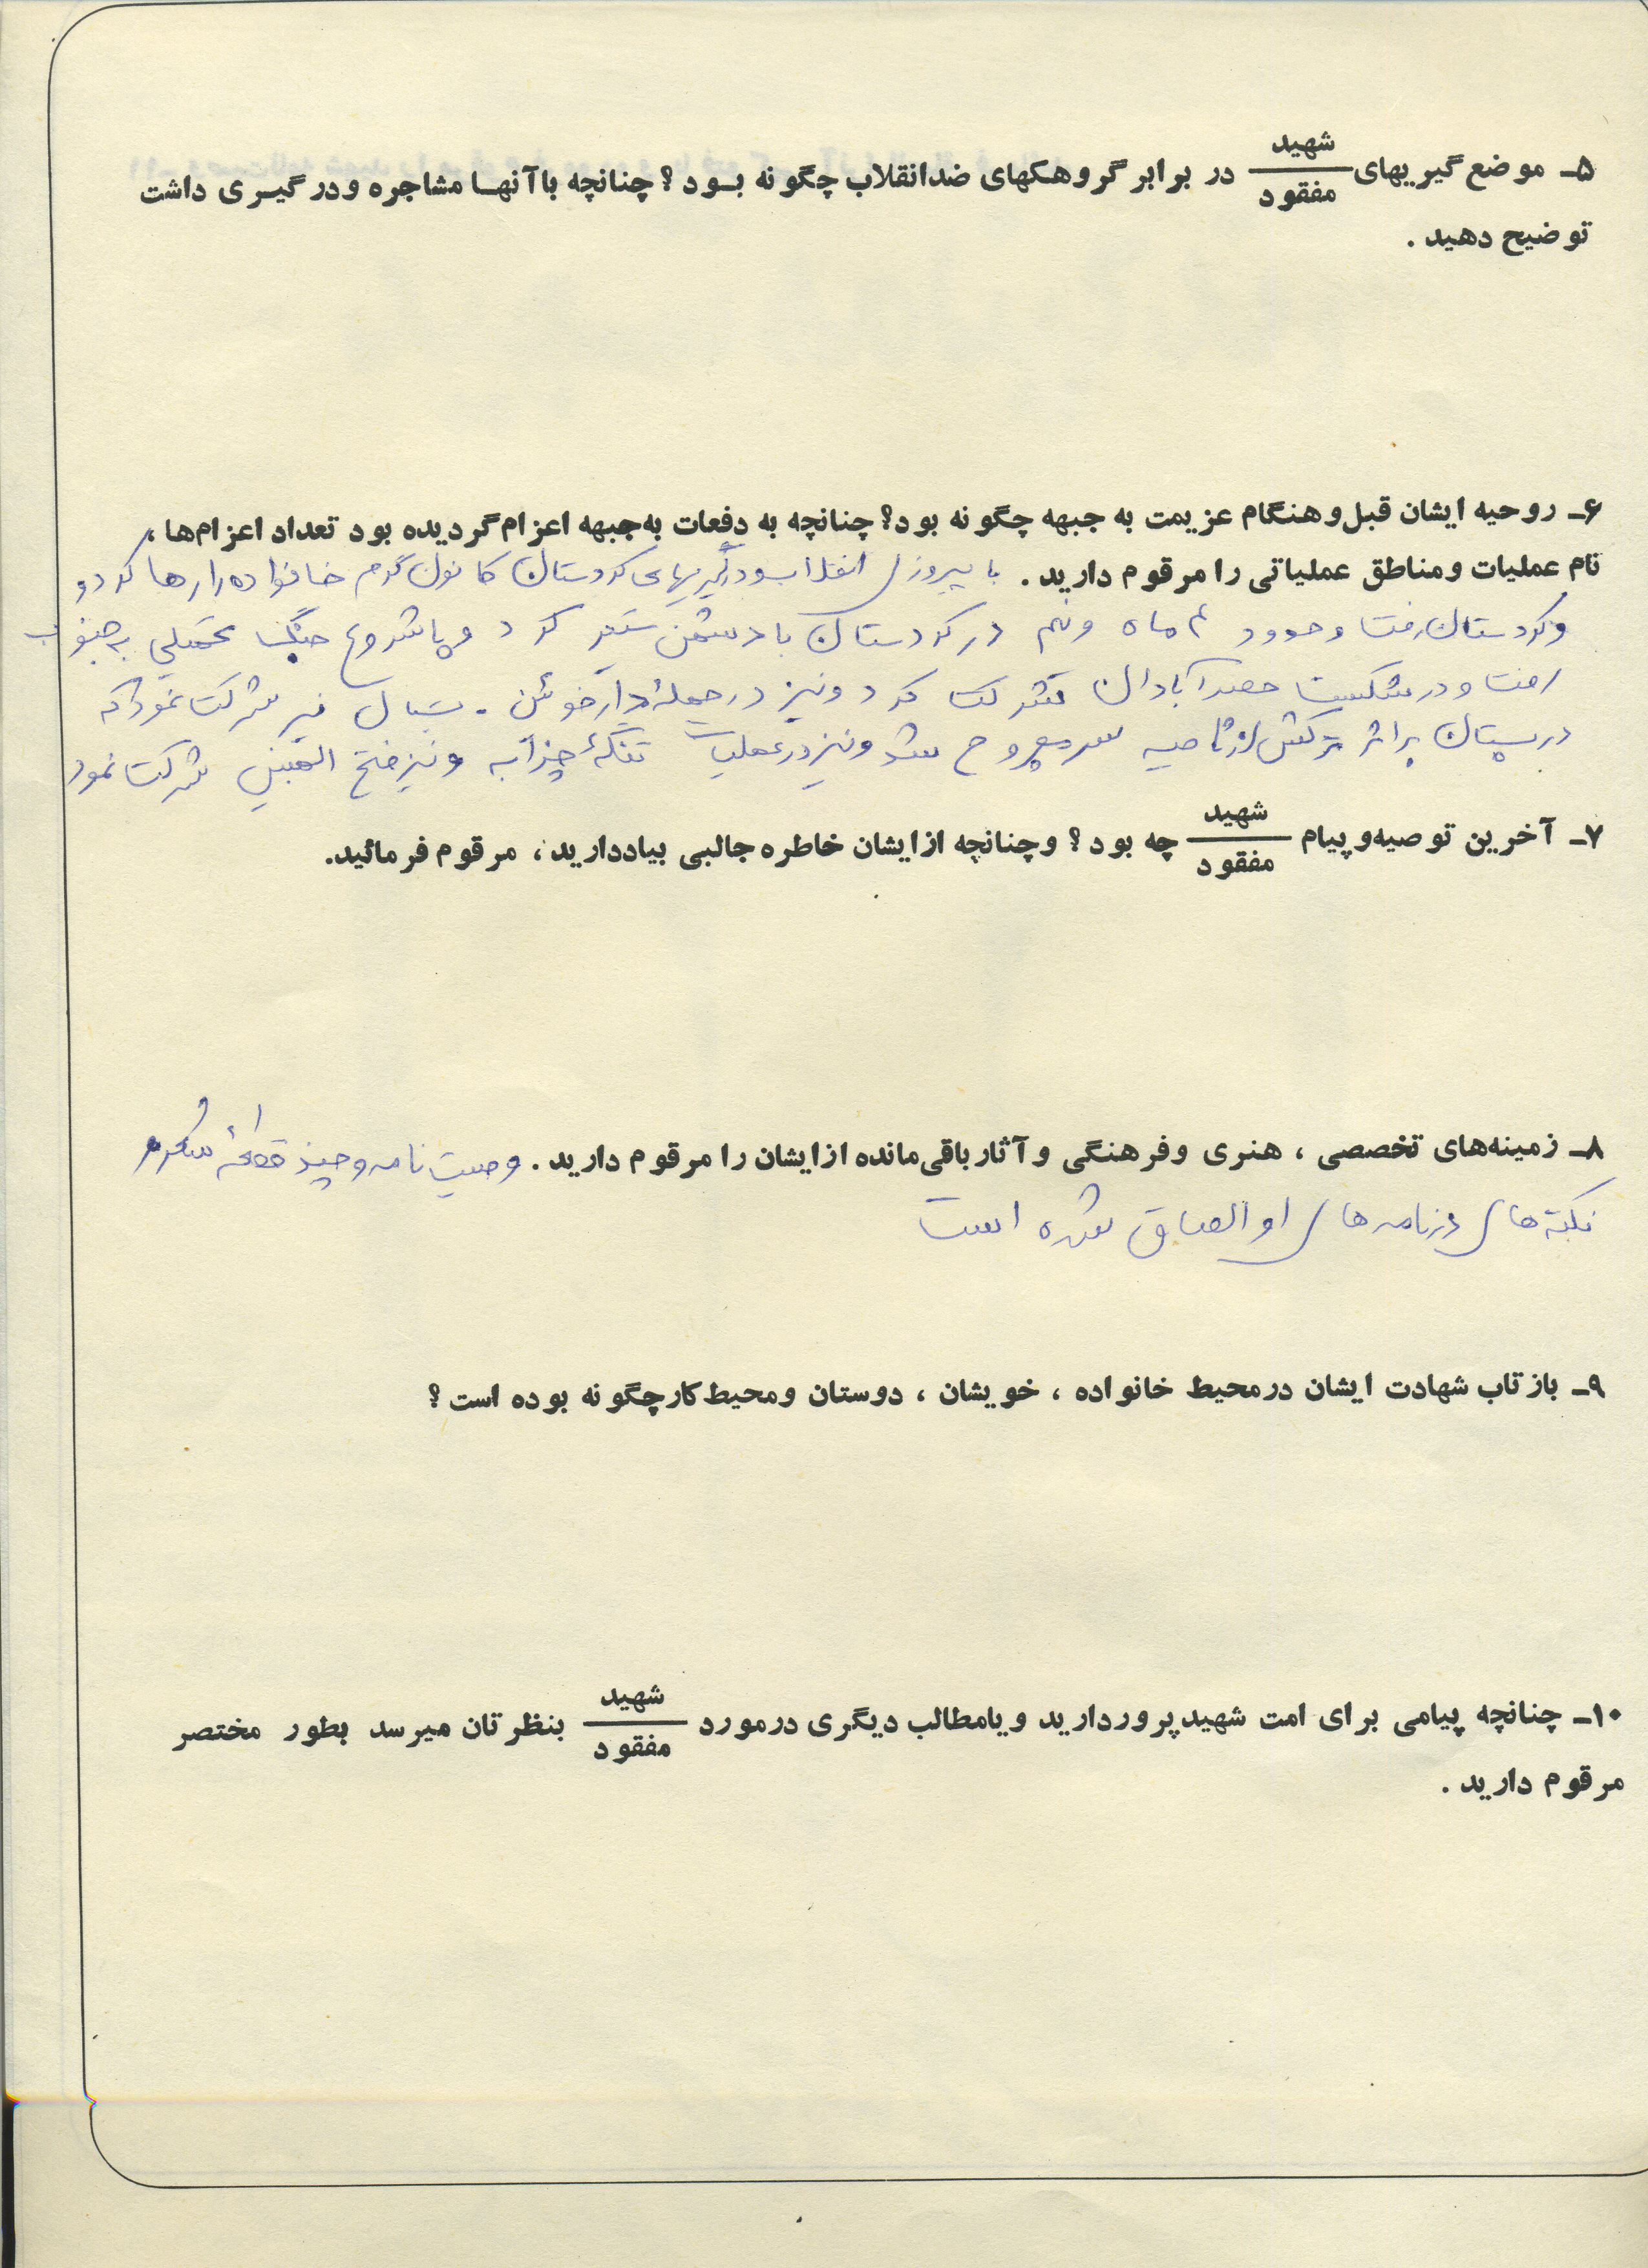 ۵ـ موضع گیریهای شهید / مفقود در برابر گروهکهای ضدانقلاب چگونه بود؟ چنانچه با آنها مشاجره ودرگیری داشت
توضیح دهید.
۶ـ روحیه ایشان قبل وهنگام عزیمت به جبهه چگونه بود؟ چنانچه به دفعات به جبهه اعزام گردیده بود تعداد اعزام‌ها،
نام عملیات ومناطق عملیاتی را مرقوم دارید. با پیروزی انقلاب ودرگیریهای کردستان کانون گرم خانواده را رها کرد و
و کردستان رفت و حدود ۲ ماه ونیم در کردستان با دشمن ستیز کرد و با شروع جنگ تحمیلی به جنوب
رفت و در شکست حصر آبادان شرکت کرد و نیز در حمله دارخوئن ـ نیز شرکت نمود که
در بستان بر اثر ترکش از ناحیه سر مجروح شد و نیز در عملیات تنگه چزابه و نیز فتح المبین شرکت نمود
۷ـ آخرین توصیه‌وپیام شهید / مفقود چه بود؟ وچنانچه ازایشان خاطره جالبی بیاددارید، مرقوم فرمائید.
۸ـ زمینه‌های تخصصی، هنری وفرهنگی و آثار باقی‌مانده ازایشان را مرقوم دارید. وصیت نامه و چند قطعه
نکته های در نامه های او الصاق شده است
۹ـ بازتاب شهادت ایشان درمحیط خانواده، خویشان، دوستان ومحیط کار چگونه بوده است؟
۱۰ـ چنانچه پیامی برای امت شهیدپروردارید ویامطالب دیگری درمورد شهید / مفقود بنظرتان میرسد بطور مختصر
مرقوم دارید.